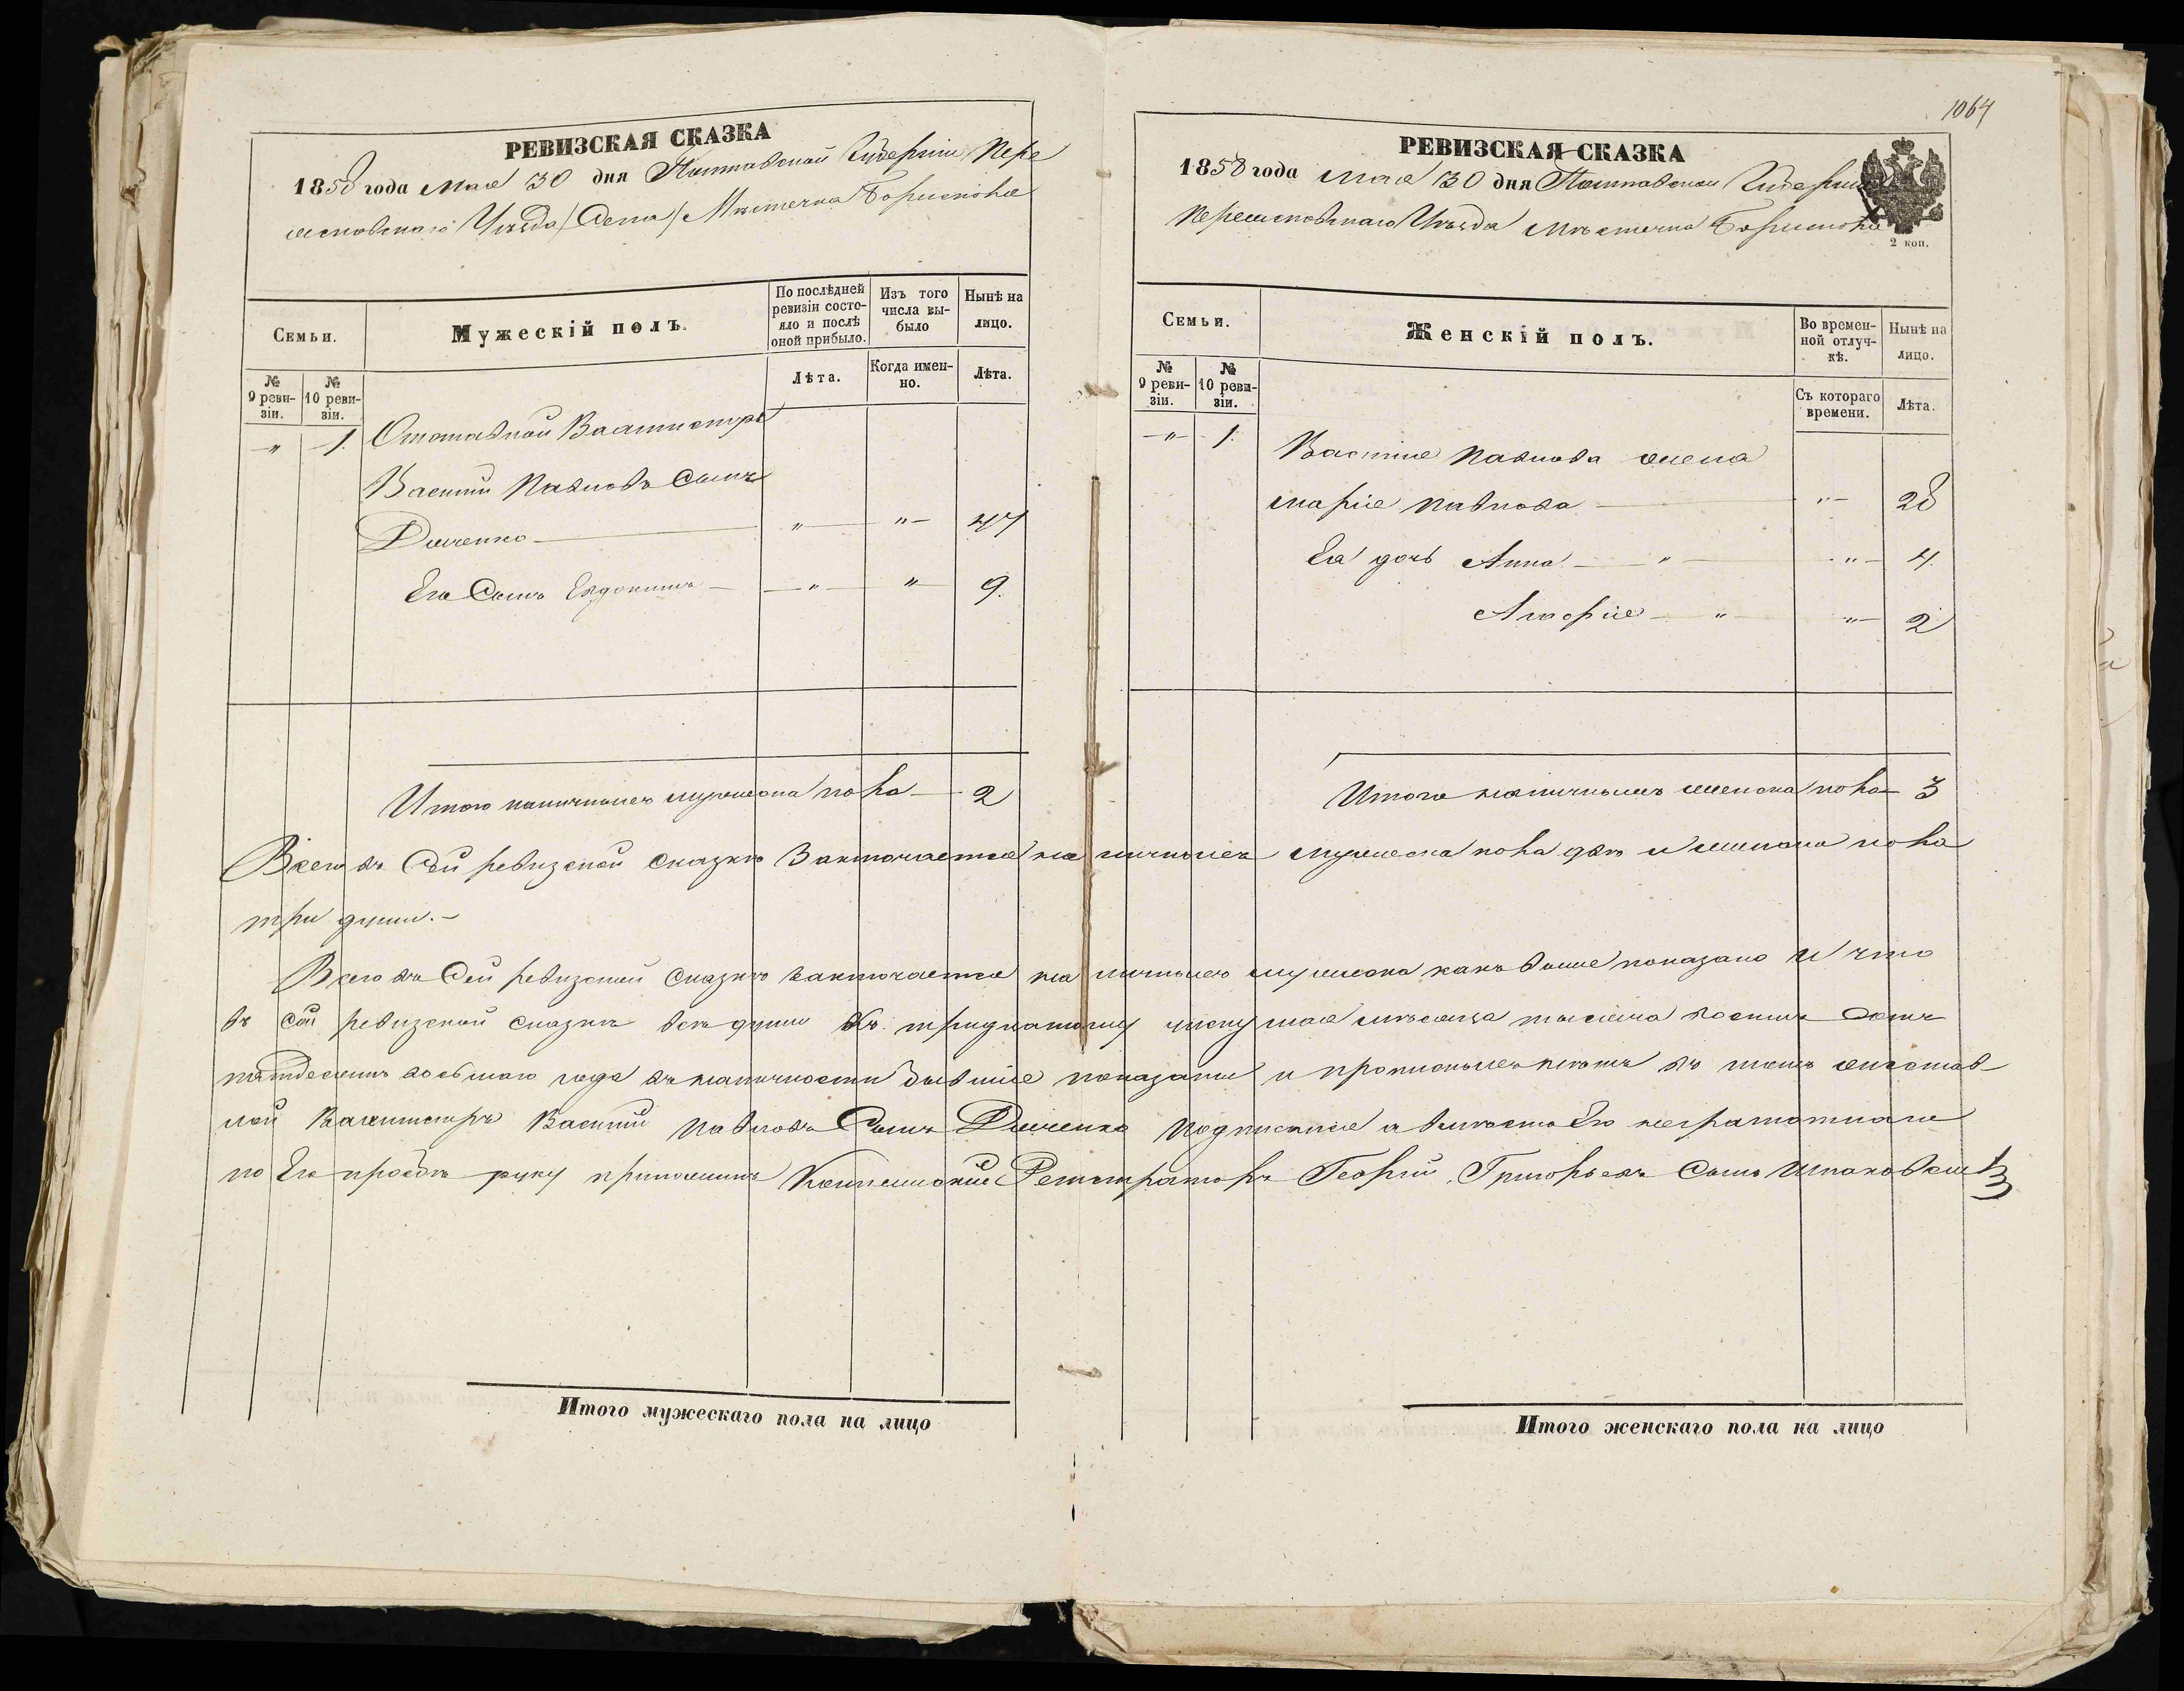 1064
РЕВИЗСКАЯ СКАЗКА
1858 года Мая 30 дня Полтавской Губерніи Пере
яславского Уѣзда (Села) Мѣстечка Борисполя
Семьи.
Мужескій полъ.
По послѣдней ревизіи состояло и послѣ оной прибыло.
Изъ того числа выбыло
Нынѣ на лицо.
№ 9 ревизіи.
№ 10 ревизіи.
Лѣта.
Когда именно.
Лѣта.
" 1. Отставной Вахмистръ
Василій Павловъ Сынъ
" " 47
Его Сынъ Евдокимъ " " 9.
Итого наличныхъ мужеска пола 2
РЕВИЗСКАЯ СКАЗКА
1858 года Мая 30 дня Полтавской Губерніи
Переясловскаго Уѣзда Мѣстечка Борисполя
2 коп.
Семьи.
Женскій полъ.
Во временной отлучкѣ.
Нынѣ на лицо.
№ 9 ревизіи.
№ 10 ревизіи.
Съ котораго времени.
Лѣта.
" 1. Василия Павлова жена
Марія Павлова " 28
Ея дочь Анна " " 4.
" " 2
Итого наличныхъ женска пола 3
Всего въ Сей ревизской сказкѣ Заключается наличныхъ мужеска пола двѣ и женска пола
три души.
Всего въ Сей ревизской Сказкѣ заключается наличныхъ мужеска какъ выше показано и что
въ сей ревизской сказкѣ всѣ души къ тридцатому числу мая мѣсяца тысяча восемь сотъ
пятдесятъ восьмаго года въ наличности бывшіе показаны и прописныхъ нѣтъ въ томъ отстав
ной Вахмистръ Василій Павловъ Сынъ подписался а вмѣсто Его неграмотнаго
по Его прозбѣ руку приложилъ Колежскій Регистраторъ Георгій Григорьевъ Сынъ
Итого мужескаго пола на лицо
Итого женскаго пола на лицо